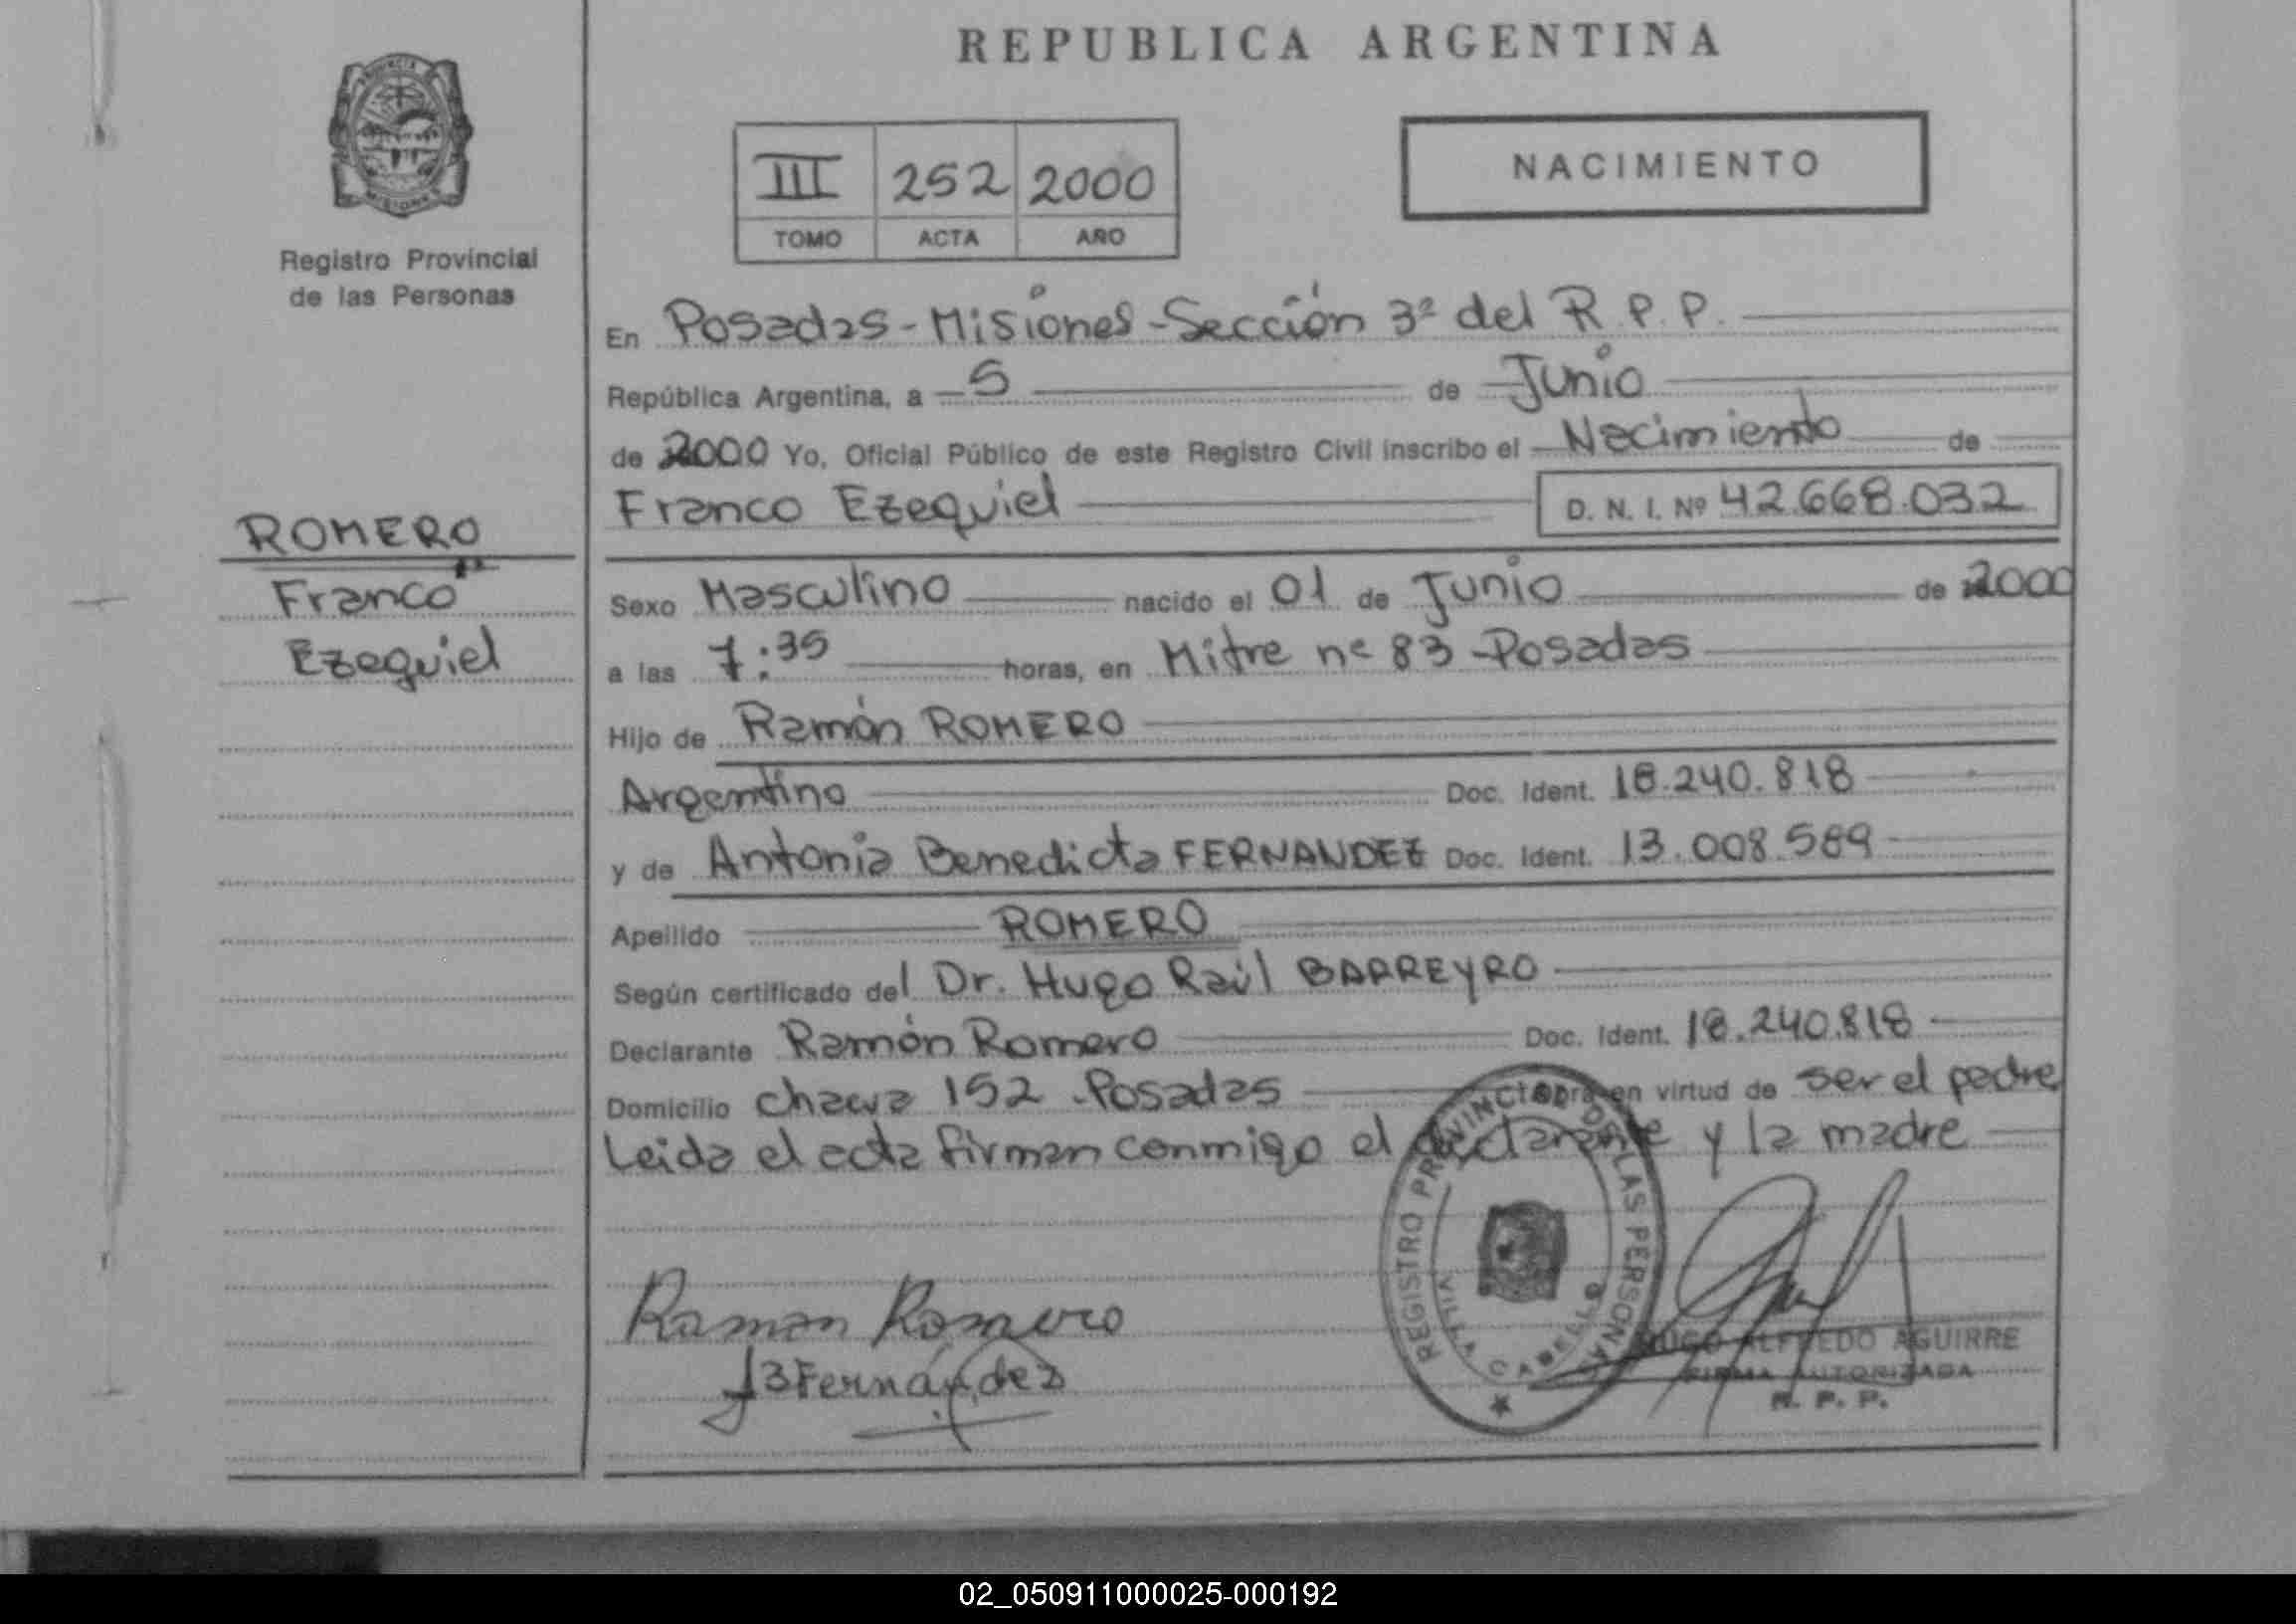 REPUBLICA ARGENTINA
PROVINCIA
MISIONES
Registro Provincial
de las Personas
NACIMIENTO
III 252 2000
TOMO ACTA AÑO
En Posadas - Misiones - Sección 3ª del R. P. P.
República Argentina, a 5 de Junio
de 2000 Yo, Oficial Público de este Registro Civil inscribo el Nacimiento de
Franco Ezequiel D. N. I. Nº 42.668.032
ROMERO
Franco
Ezequiel
Sexo Masculino nacido el 01 de Junio de 2000
a las 7:35 horas, en Mitre nº 83 - Posadas
Hijo de Ramón ROMERO
Argentino Doc. Ident. 18.240.818
y de Antonia Benedicta FERNANDEZ Doc. Ident. 13.008.589
Apellido ROMERO
Según certificado del Dr. Hugo Raúl BARREYRO
Declarante Ramón Romero Doc. Ident. 18.240.818
Domicilio 152 - Posadas obra en virtud de ser el padre
Leida el acta firman conmigo el declarante y la madre
REGISTRO PROVINCIAL DE LAS PERSONAS
VILLA CABELLO
Ramon Romero
Fernández
HUGO ALFREDO AGUIRRE
FIRMA AUTORIZADA
R. P. P.
02_050911000025-000192